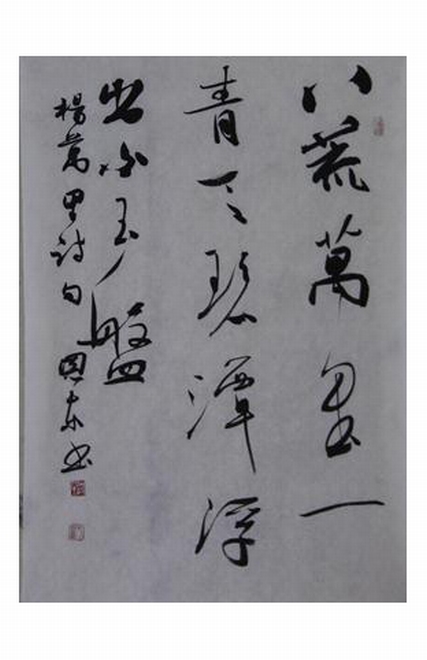 八荒萬里一
青天碧潭浮
出白玉盤
楊萬里詩句 國東書